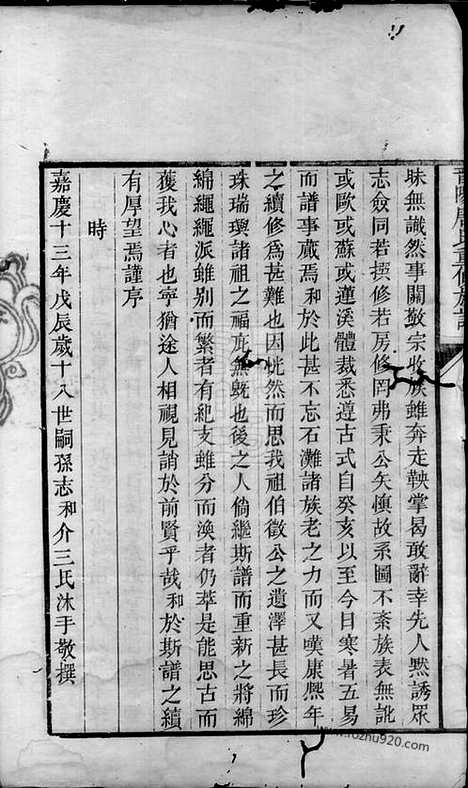 昧無識然事關敬宗收族雖奔走鞅掌曷敢辭幸先人黙誘眾
志僉同若撰修若房修罔弗秉公矢愼故系圖不紊族表無訛
或歐或蘇或蓮溪體裁悉遵古式自癸亥以至今日寒暑五易
而譜事蕆焉和於此甚不忘石灘諸族老之力而又嘆康熈年
之續修爲甚難今因恍然而思我祖伯徵公之遺澤甚長而珍
珠瑞璵諸祖之福庇無旣也後之人倘繼斯譜而重新之將綿
綿繩繩派雖別而繁者有紀支雖分而渙者仍萃是能思古而
獲我心者也寧猶途人相視見誚於前賢乎哉和於斯譜之續
有厚望焉謹序
時
嘉慶十三年戊辰歲十八世嗣孫志和介三氏沐手敬撰
www.fozhu920.com